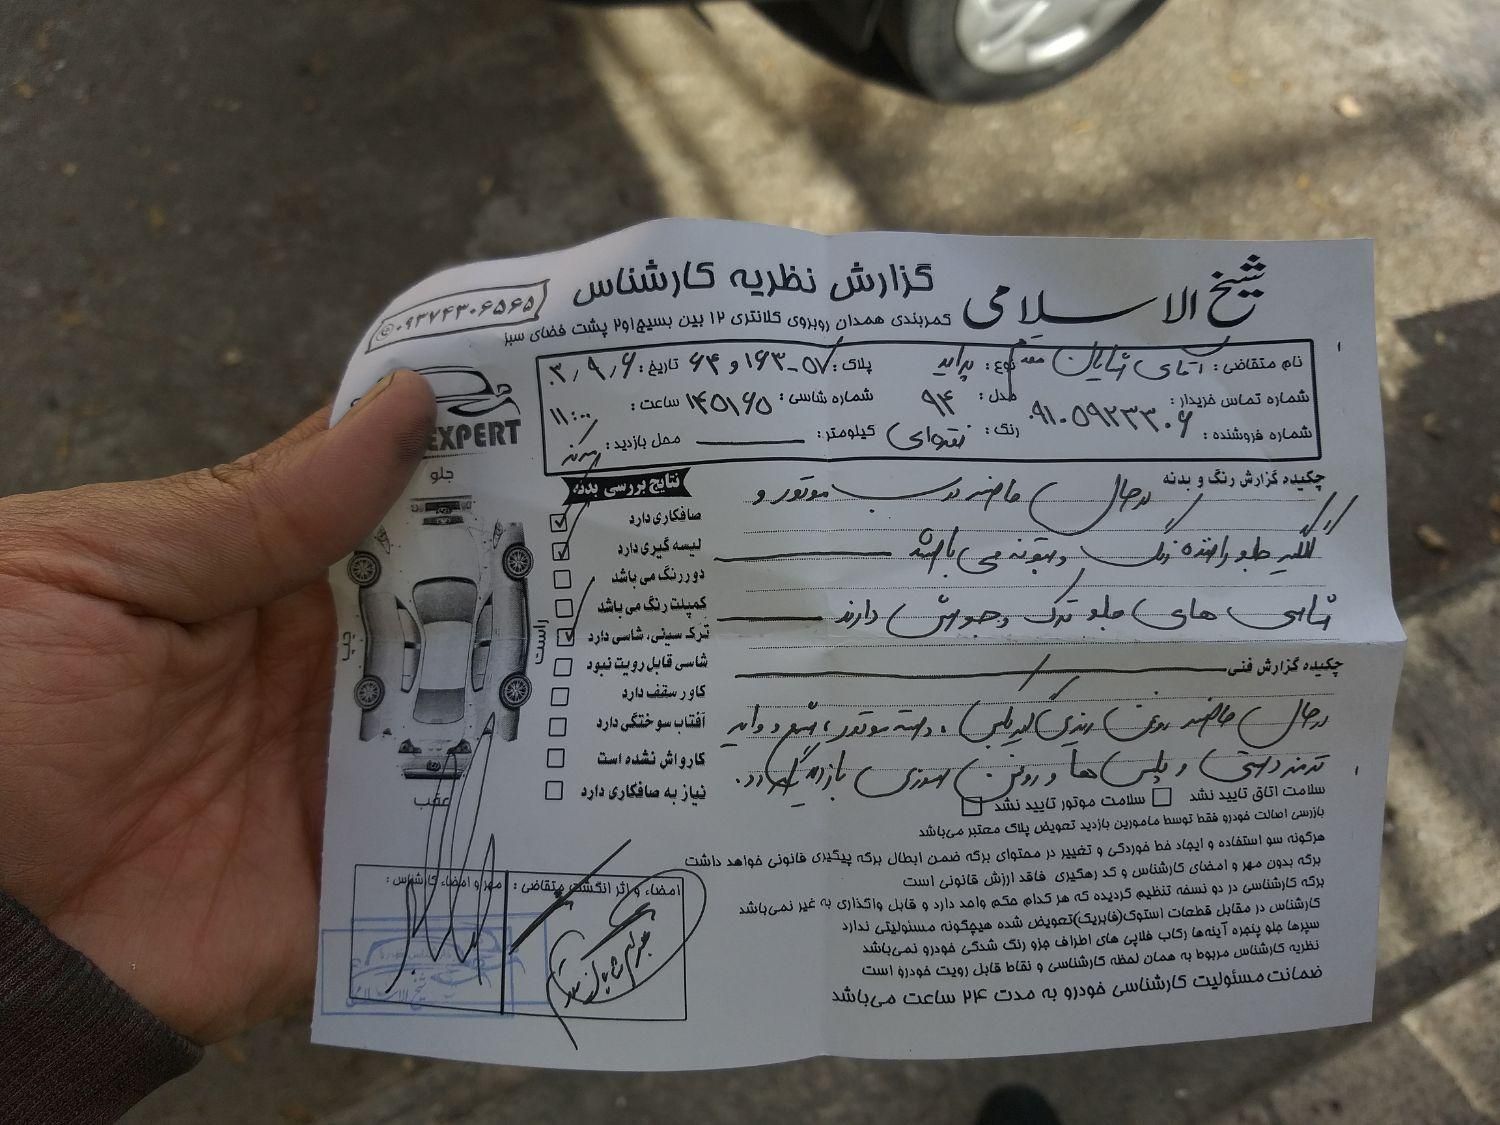 شیخ الاسلامی
گزارش نظریه کارشناس
۰۹۳۷۴۳۰۶۵۶۵
کمربندی همدان روبروی کلانتری ۱۲ بین بسیج ۱و۲ پشت فضای سبز
نام متقاضی : آقای شایان مقدم نوع : پراید پلاک : ۵۷-۱۶۳ و ۶۴ تاریخ : ۰۳/۹/۶
شماره تماس خریدار : مدل : ۹۴ شماره شاسی : ۱۴۵۱۶۵ ساعت : ۱۱:۰۰
۰۹۱۰۵۹۲۳۳۰۶
شماره فروشنده : رنگ : نقره‌ای کیلومتر : محل بازدید :
EXPERT
جلو
راست
چپ
عقب
نتایج بررسی بدنه
صافکاری دارد
لیسه گیری دارد
دوررنگ می باشد
کمپلت رنگ می باشد
ترک سینی، شاسی دارد
شاسی قابل رویت نبود
کاور سقف دارد
آفتاب سوختگی دارد
کارواش نشده است
نیاز به صافکاری دارد
چکیده گزارش رنگ و بدنه
درحال حاضر درب موتور و
گلگیر جلو راننده رنگ و بتونه می باشد
شاسی های جلو ترک و جوش دارند
چکیده گزارش فنی
درحال حاضر روغن ریزی گیربکس، دسته موتور، شمع و وایر
ترمز دستی و پلس ها و روغن سوزی بازدید گردد.
سلامت اتاق تایید نشد سلامت موتور تایید نشد
بازرسی اصالت خودرو فقط توسط مامورین بازدید تعویض پلاک معتبر می‌باشد
هرگونه سو استفاده و ایجاد خط خوردگی و تغییر در محتوای برگه ضمن ابطال برگه پیگیری قانونی خواهد داشت
برگه بدون مهر و امضای کارشناس و کد رهگیری فاقد ارزش قانونی است
برگه کارشناسی در دو نسخه تنظیم گردیده که هر کدام حکم واحد دارد و قابل واگذاری به غیر نمی‌باشد
کارشناس در مقابل قطعات استوک(فابریک)تعویض شده هیچگونه مسئولیتی ندارد
سپرها جلو پنجره آینه‌ها رکاب فلاپی های اطراف جزو رنگ شدگی خودرو نمی‌باشد
نظریه کارشناس مربوط به همان لحظه کارشناسی و نقاط قابل رویت خودرو است
ضمانت مسئولیت کارشناسی خودرو به مدت ۲۴ ساعت می‌باشد
امضاء و اثر انگشت متقاضی :
مهر و امضاء کارشناس :
شیخ الاسلامی